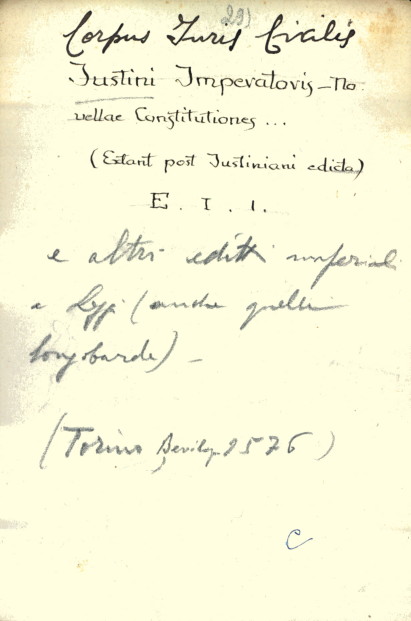 29)
Corpus Juris Civilis
Justini Imperatoris - No
vellae Constitutiones ...
(Extant post Justiniani edicta)
E. I. 1.
e altri editti imperiali
e Leggi (anche quelle
longobarde) -
(Torino, Bevilaq. 1576)
C